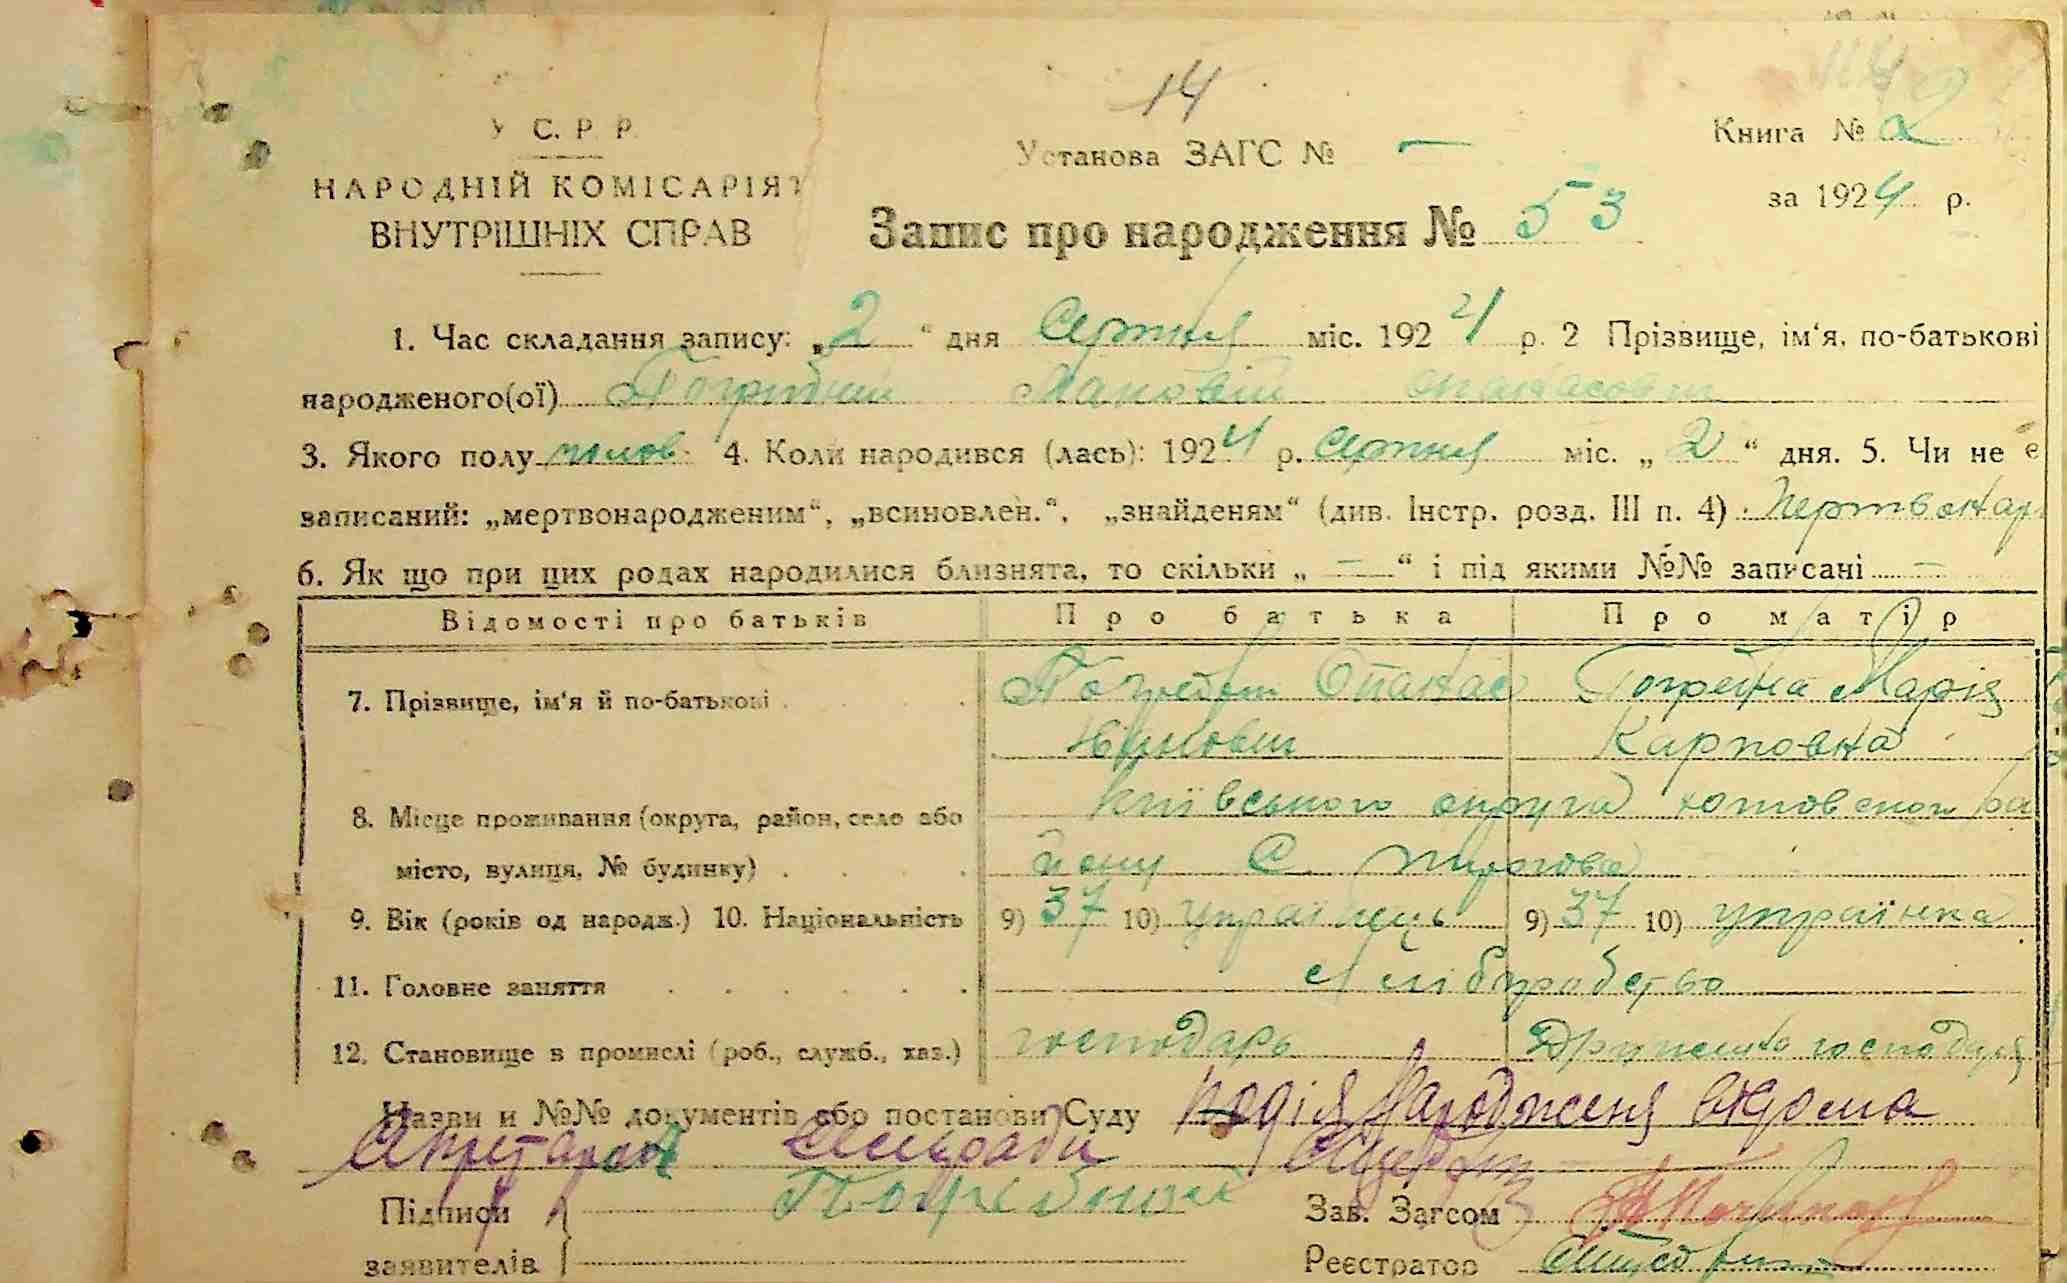 14
У С. Р. Р.
НАРОДНІЙ КОМІСАРІЯТ
ВНУТРІШНІХ СПРАВ
Установа ЗАГС № —
Книга № 2
за 1924 р.
Запис про народження № 53
1. Час складання запису: „2“ дня Серпня міс. 1924 р. 2 Прізвище, ім'я, по-батькові
народженого(ої)
3. Якого полу 4. Коли народився (лась): 1924 р. серпня міс. „2“ дня. 5. Чи не є
записаний: „мертвонародженим“, „всиновлен.“, „знайденям“ (див. Інстр. розд. III п. 4)
6. Як що при цих родах народилися близнята, то скільки „—“ і під якими №№ записані —
Відомості про батьків Про батька Про матір
7. Прізвище, ім'я й по-батькові Опанас Марія
Карповна
8. Місце проживання (округа, район, село або Київського округа
місто, вулиця, № будинку) С.
9. Вік (років од народж.) 10. Національність 9) 37 10) українець 9) 37 10) українка
11. Головне заняття хліборобство
12. Становище в промислі (роб., служб., хаз.) господарь
Назви и №№ документів або постанови Суду подія Народженя відома
Секретарові Сільради
Підписи Погребний Зав. Загсом
заявителів Реєстратор